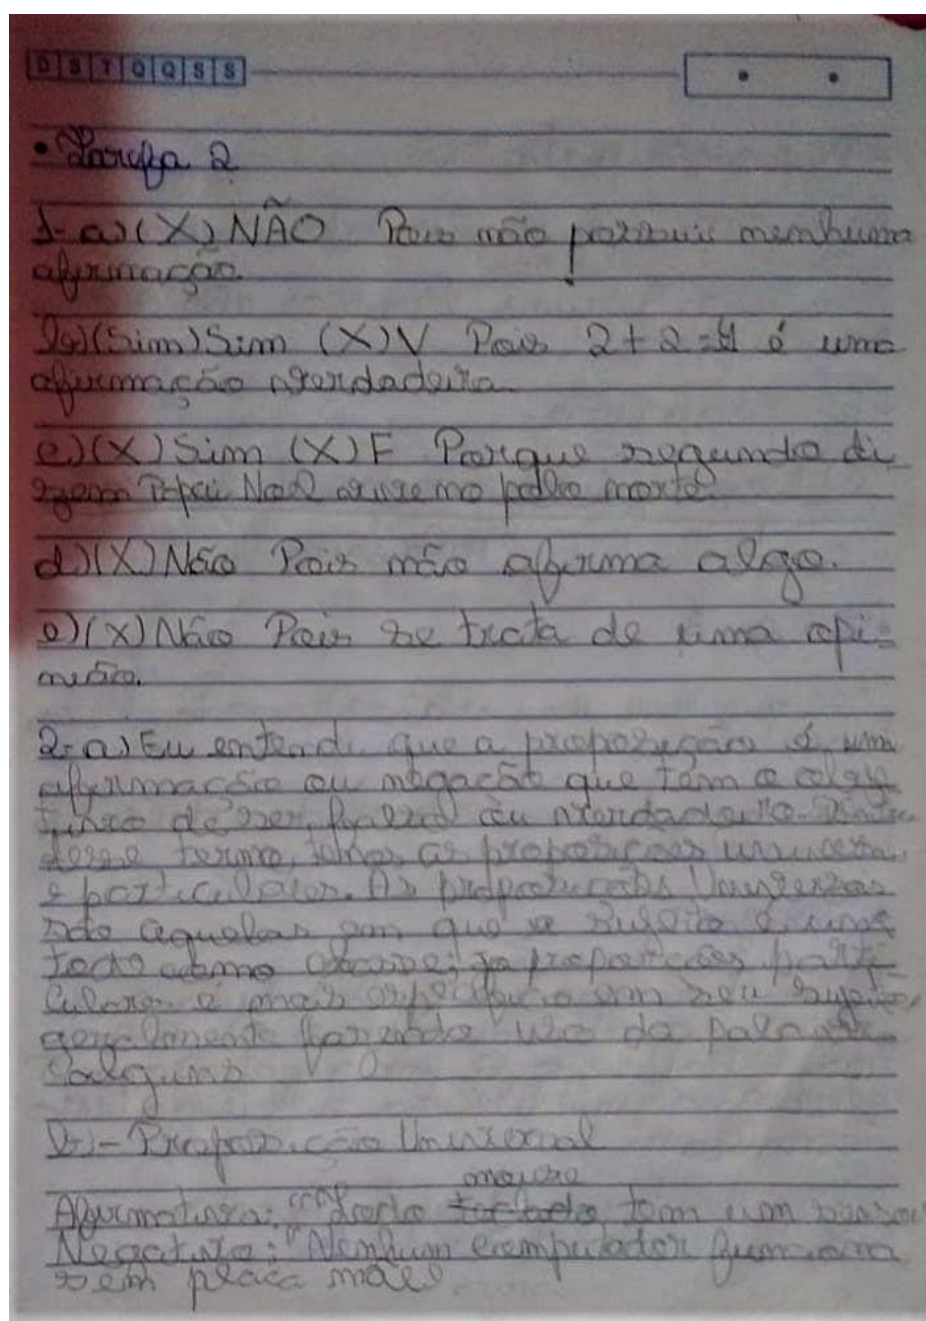 D S T Q Q S S
• Tarefa 2
1-a)(X) NÃO Pois não possui nenhuma
afirmação.
b)(Sim) Sim (X) V Pois 2+2=4 é uma
afirmação verdadeira
c)(X) Sim (X) F Porque segundo di
zem Papai Noel vive no polo norte.
d)(X) Não Pois não afirma algo.
e)(X) Não Pois se trata de uma opi-
nião.
2-a) Eu entendi que a proposição é um
afirmação ou negação que tem o
de ser falso ou verdadeiro.
desse termo, temos as proposições
e particulares. As proposições Universais
são aquelas em que o sujeito é um
todo como já proposições parti
culares é mais específico em seu sujeito,
geralmente fazendo uso da palavra
alguns
b)- Proposição Universal
mouse
Afirmativa: "Todo tem um
Negativa: "Nenhum computador funciona
sem placa mãe"